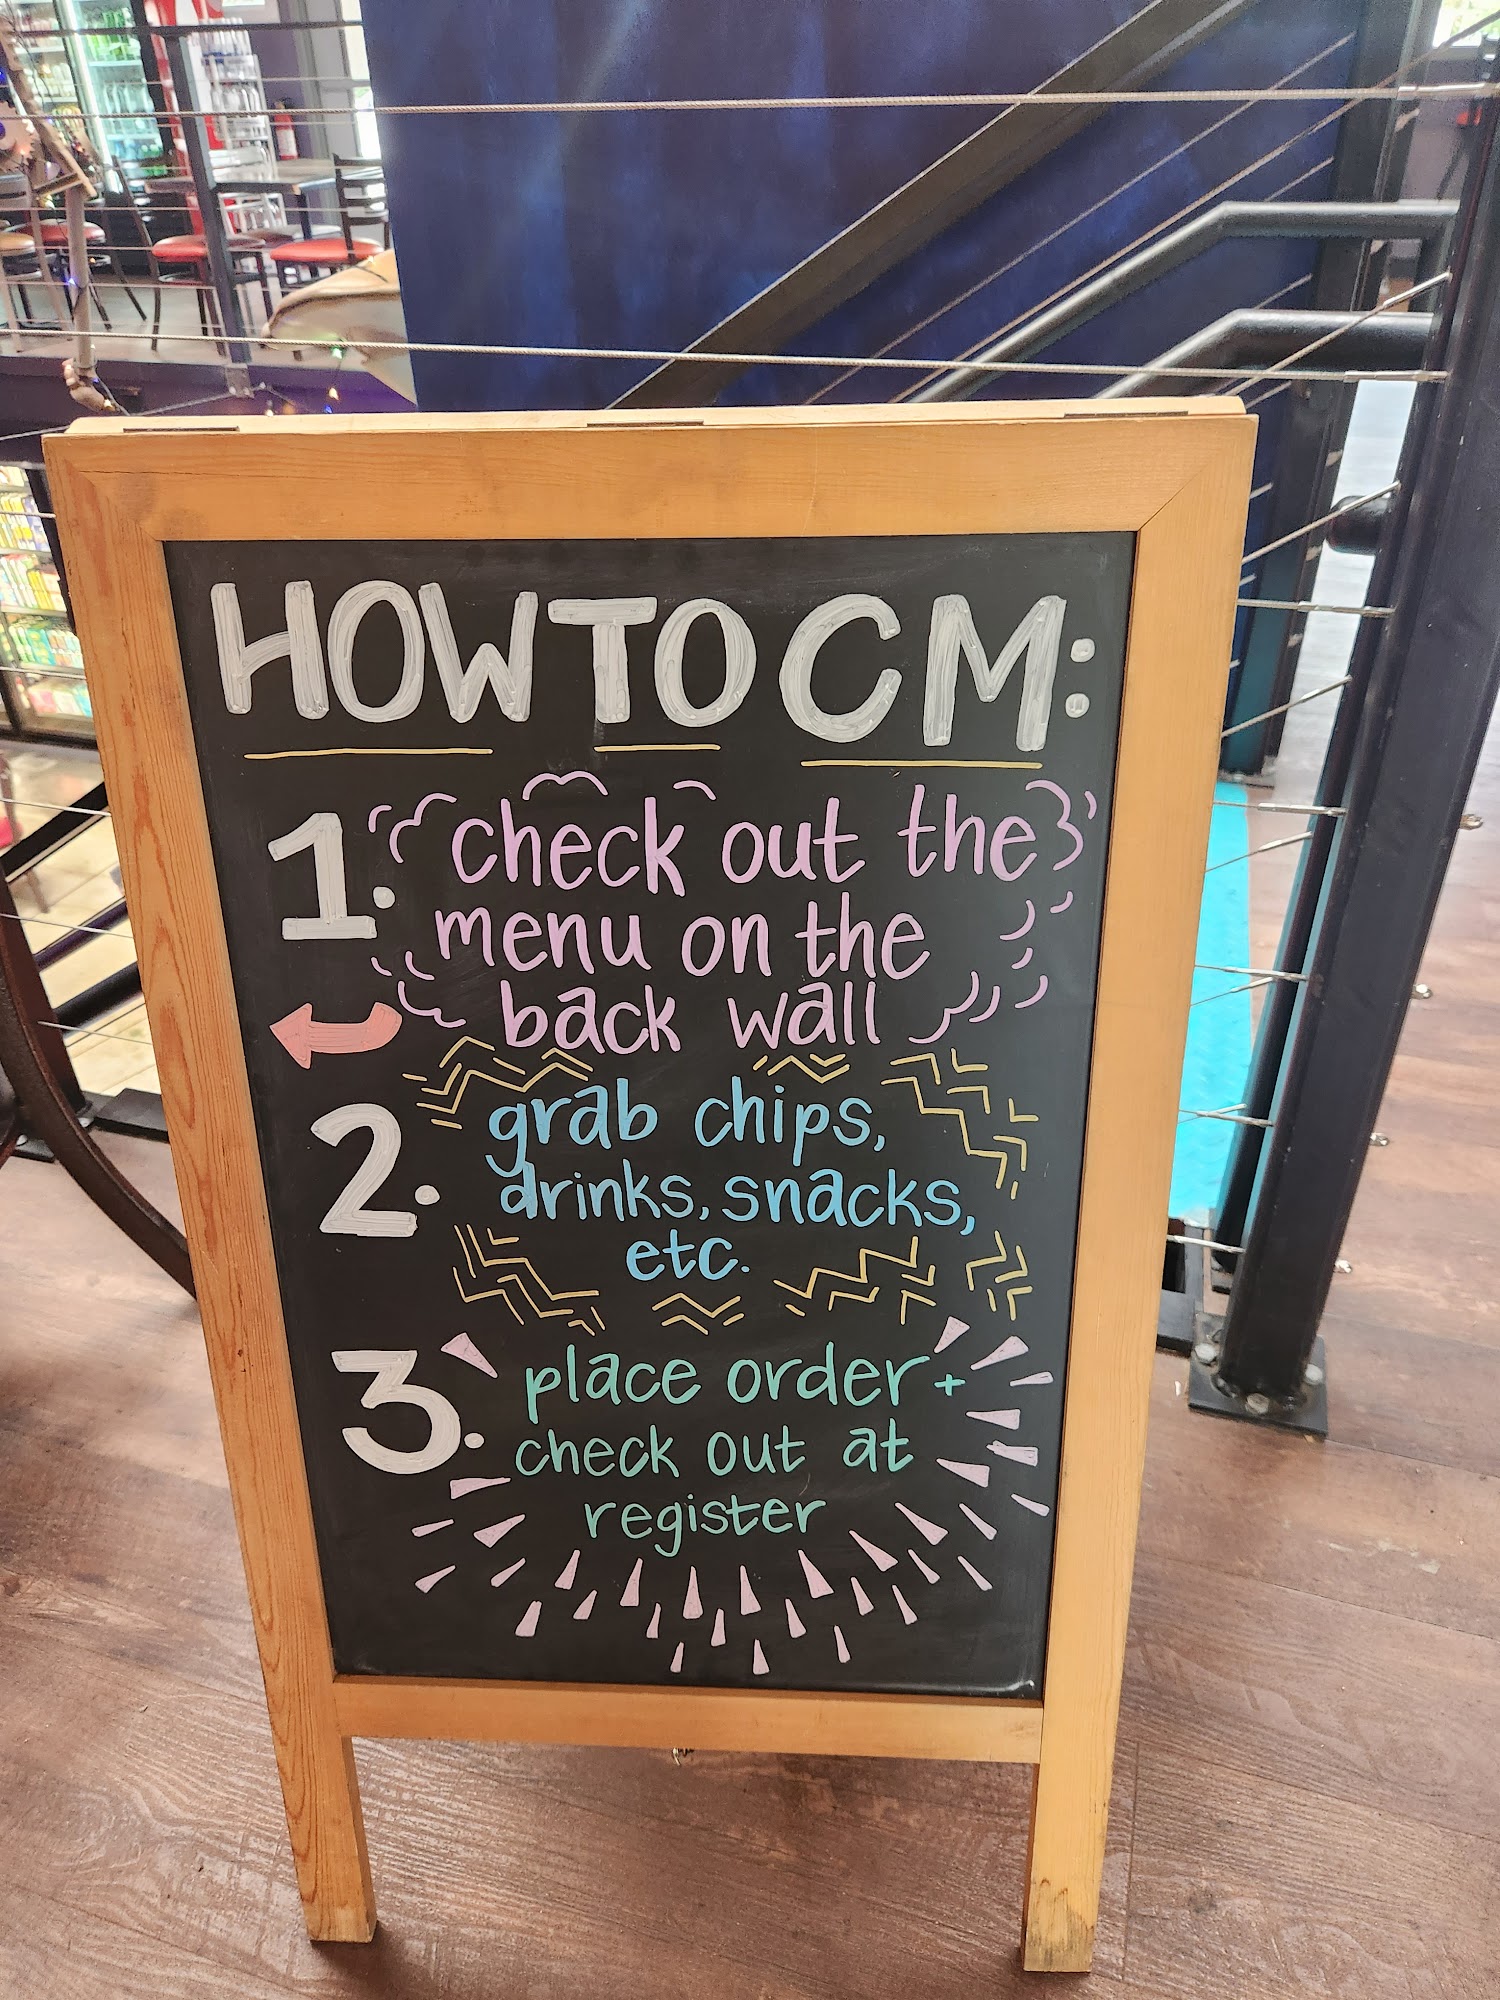 HOW TO CM:
1. check out the
menu on the
back wall
2. grab chips,
drinks, snacks,
etc.
3. place order +
check out at
register